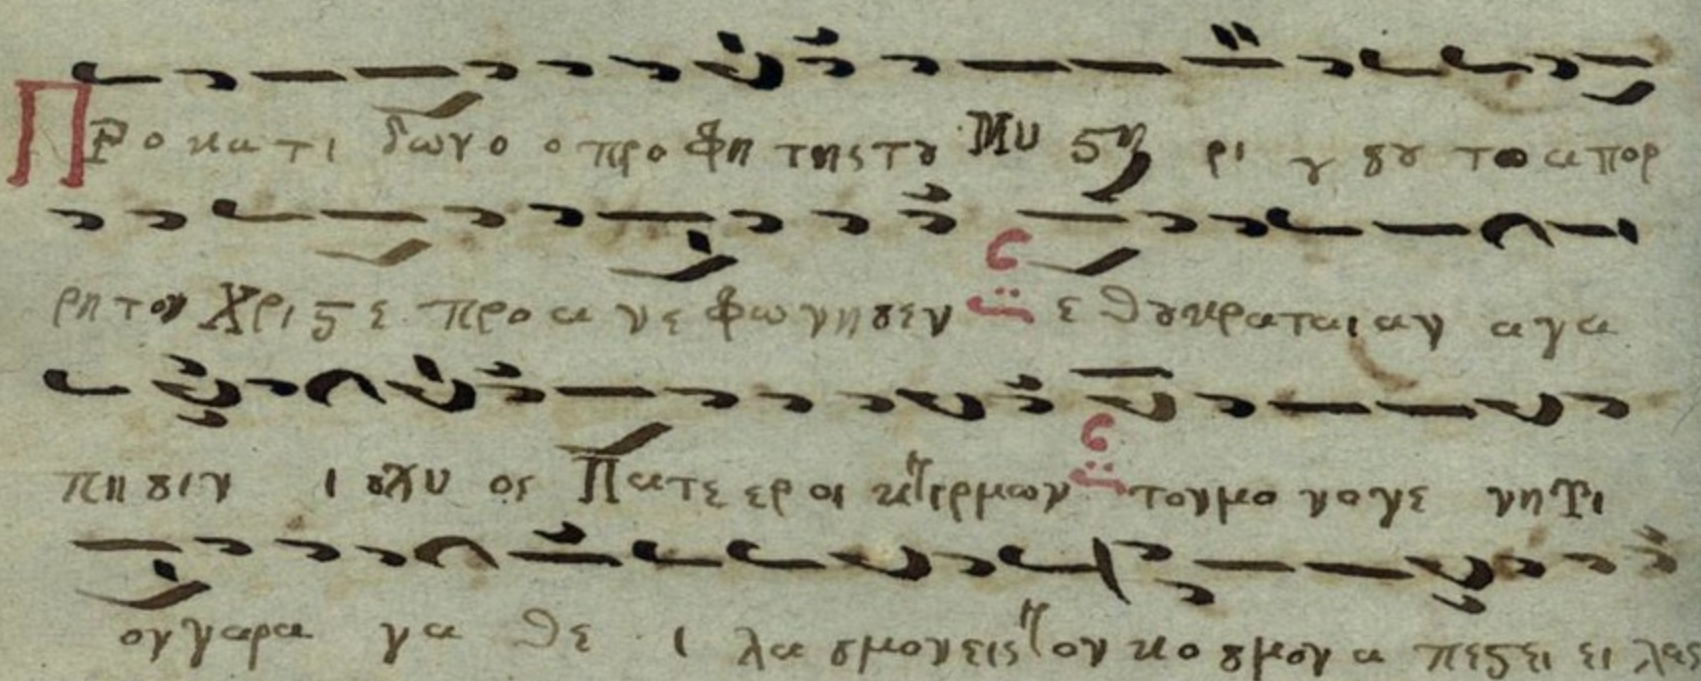 Προκατιδων ο ο προφητης του Μυστηριου σου το απορ
ρητον Χριστε προανεφωνησεν εθου κραταιαν αγα
πησιν ισχυος Πατε ερ οικτιρμων τον μονογενη
ον γαρ αγαθε ιλασμον εις τον κοσμον απεστειειλας